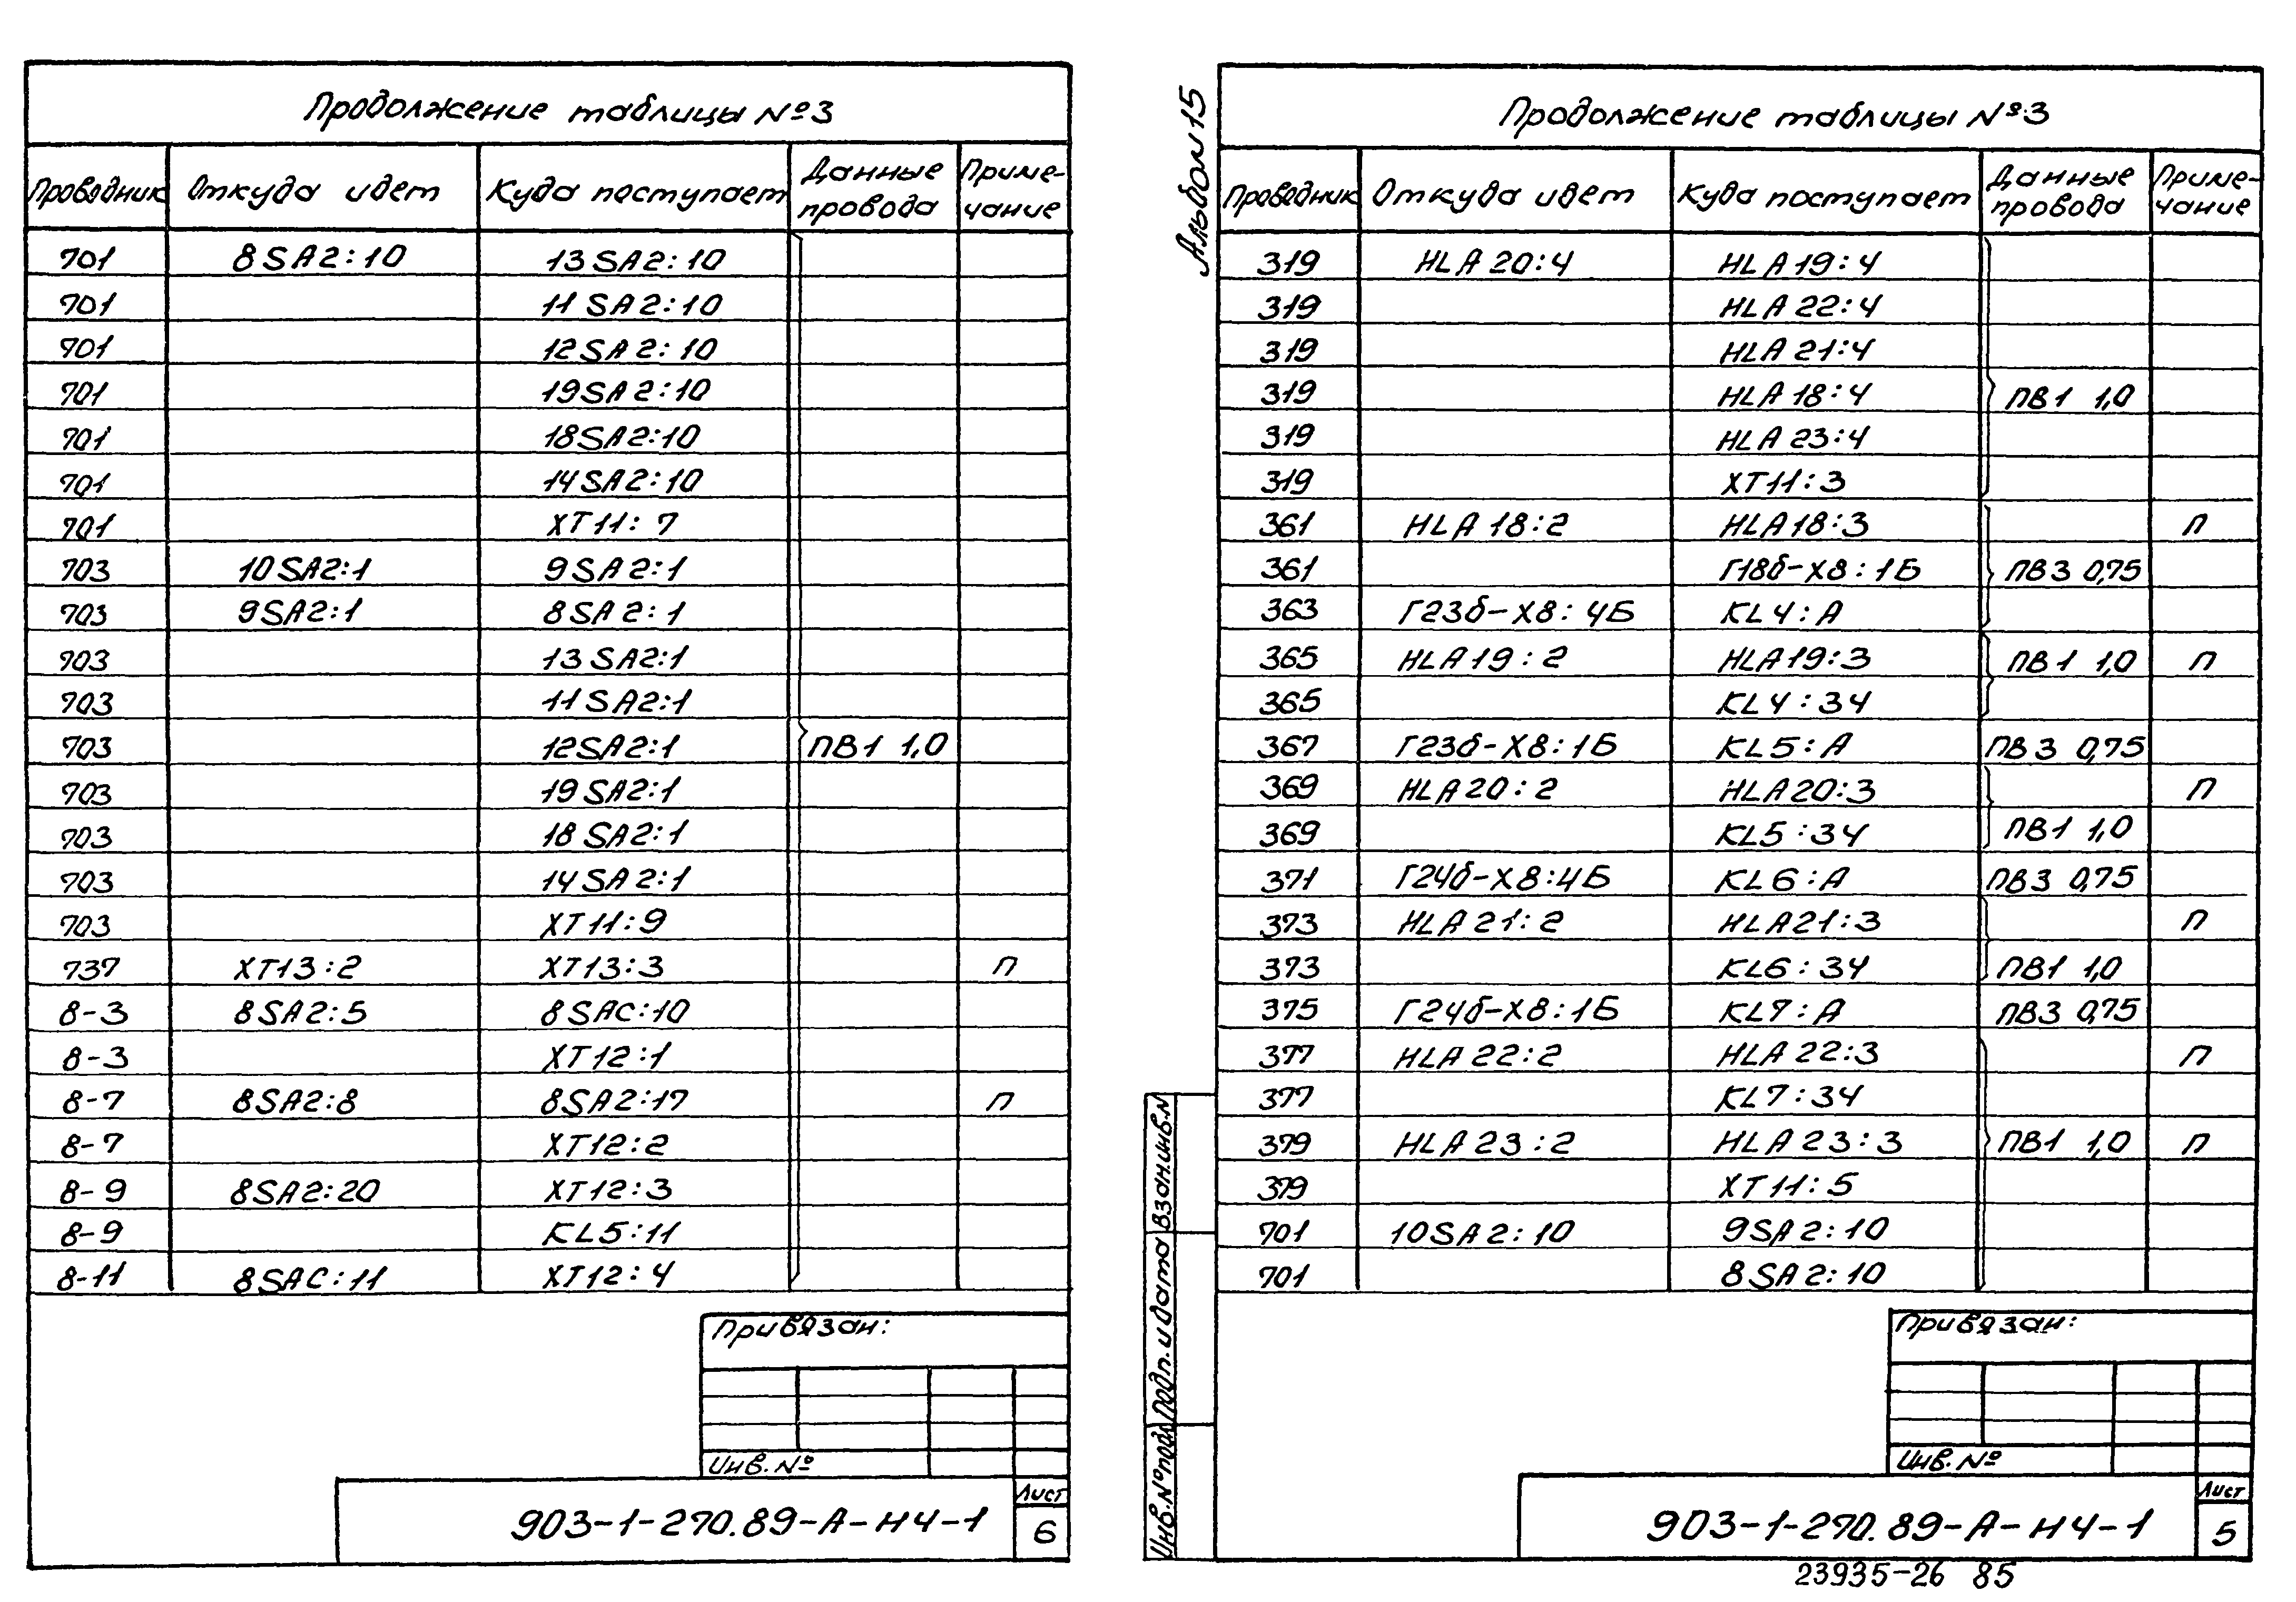 Продолжение таблицы №3
Проводник Откуда идет Куда поступает Данные провода Примечание
701 8SA2:10 13SA2:10
701 11SA2:10
701 12SA2:10
701 19SA2:10
701 18SA2:10
701 14SA2:10
701 XT11:7
703 10SA2:1 9SA2:1
703 9SA2:1 8SA2:1
703 13SA2:1
703 11SA2:1
703 12SA2:1 ПВ1 1,0
703 19SA2:1
703 18SA2:1
703 14SA2:1
703 XT11:9
737 XT13:2 XT13:3 П
8-3 8SA2:5 8SAC:10
8-3 XT12:1
8-7 8SA2:8 8SA2:17 П
8-7 XT12:2
8-9 8SA2:20 XT12:3
8-9 KL5:11
8-11 8SAC:11 XT12:4
Привязан:
Инв.№
903-1-270.89-А-Н4-1
Лист
6
Альбом 15
Продолжение таблицы №3
Проводник Откуда идет Куда поступает Данные провода Примечание
319 HLA20:4 HLA19:4
319 HLA22:4
319 HLA21:4
319 HLA18:4 ПВ1 1,0
319 HLA23:4
319 XT11:3
361 HLA18:2 HLA18:3 П
361 Г18б-Х8:1Б ПВ3 0,75
363 Г23б-Х8:4Б KL4:A
365 HLA19:2 HLA19:3 ПВ1 1,0 П
365 KL4:34
367 Г23б-Х8:1Б KL5:A ПВ3 0,75
369 HLA20:2 HLA20:3 П
369 KL5:34 ПВ1 1,0
371 Г24б-Х8:4Б KL6:A ПВ3 0,75
373 HLA21:2 HLA21:3 П
373 KL6:34 ПВ1 1,0
375 Г24б-Х8:1Б KL7:A ПВ3 0,75
377 HLA22:2 HLA22:3 П
377 KL7:34
379 HLA23:2 HLA23:3 ПВ1 1,0 П
379 XT11:5
701 10SA2:10 9SA2:10
701 8SA2:10
Привязан:
Инв.№
903-1-270.89-А-Н4-1
Лист
5
Взам.инв.№
Подп. и дата
Инв.№подл
23935-26 85